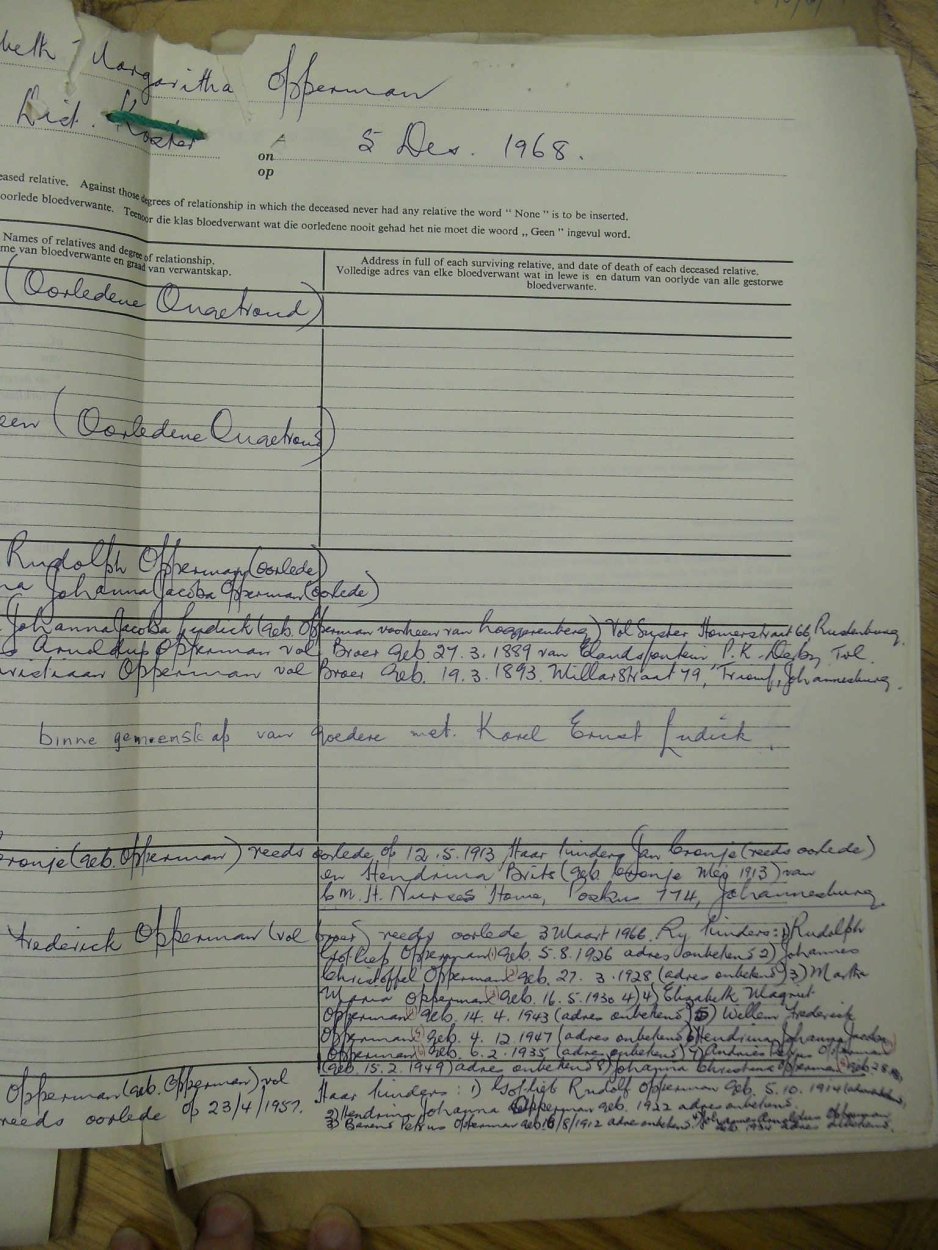 beth Margaritha Opperman
Dist. Koster
on 5 Des. 1968.
op
eased relative. Against those degrees of relationship in which the deceased never had any relative the word " None " is to be inserted.
oorlede bloedverwante. Teenoor die klas bloedverwant wat die oorledene nooit gehad het nie moet die woord „ Geen " ingevul word.
Names of relatives and degree of relationship.
me van bloedverwante en graad van verwantskap.
Address in full of each surviving relative, and date of death of each deceased relative.
Volledige adres van elke bloedverwant wat in lewe is en datum van oorlyde van alle gestorwe
bloedverwante.
(Oorledene Ongetroud)
een (Oorledene Ongetroud)
Rudolph Opperman (oorlede)
na Johanna Jacoba Opperman (oorlede)
Johanna Jacoba Ludick (geb. Opperman voorheen van) Vol Suster Homerstraat 66, Rustenburg
Opperman vol Broer Geb. 27.3.1889 van Elandsfontein P.K. Derby Tvl.
ristiaan Opperman vol Broer Geb. 19.3.1893. 79, Triomf, Johannesburg.
binne gemeenskap van goedere met. Karel Ernst Ludick.
ronje (geb. Opperman) reeds oorlede op 12.5.1913 Haar kinders Jan Cronje (reeds oorlede)
en Hendrina Brits (geb. Cronje 1913) van
Nurses Home, Posbus 774, Johannesburg
Frederick Opperman (vol broer) reeds oorlede 3 Maart 1966. Sy kinders: 1) Rudolph
Gotliep Opperman geb. 5.8.1926 adres onbekend 2) Johannes
Christoffel Opperman geb. 27.3.1928 (adres onbekend) 3) Martha
Maria Opperman geb. 16.5.1930 4) Elizabeth Magriet
Opperman geb. 14.4.1943 (adres onbekend) 5) Willem Frederick
Opperman geb. 4.12 1947 (adres onbekend 6) Hendrina Johanna Jacoba
Opperman geb. 6.2.1935 (adres onbekend) 7) Andries Petrus Opperman
(geb. 15.2.1949) adres onbekend 8) Johanna Christina Opperman geb
Opperman (geb. Opperman) vol
reeds oorlede op 23/4/1957.
Haar kinders: 1) Gotlieb Rudolf Opperman geb. 5.10.1914
2) Hendrina Johanna Opperman geb. 1922 adres onbekend.
3) Barend Petrus Opperman geb 16/8/1912 adres onbekend. Johannes Opperman